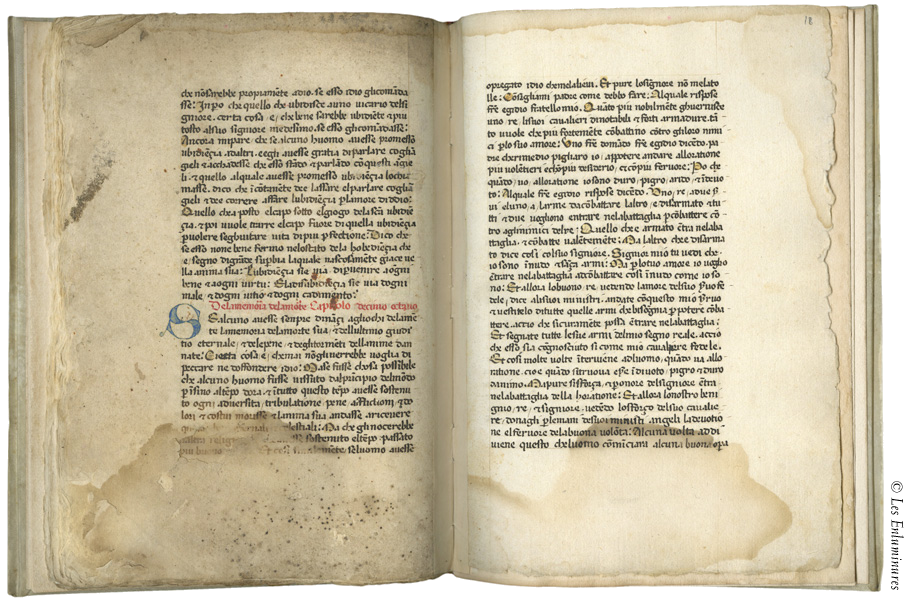 che nõsarebbe propiamẽte adio. se esso idio glicomãda
sse: Inpo che quello che ubidisce auno uicario delsi
gniore. certa cosa e, che bene sarebbe ubidiẽte & piu
tosto alsuo signiore medesimo. se esso ghcomãdasse:
Ancora mi pare. che se alcuno huomo auesse promesso
ubidiẽçia adaltri. & egli auesse gratia di parlare cogliã
geli & achadesse che esso stãdo & parlãdo cõ questi agie
li. & quello alquale auesse promesso ubidiẽçia lochia
masse. dico che icõtanẽte dee lassare elparlare cogliã
geli & dee correre affare lubidiẽçia plamore di ddio:
Quello cha posto elcapo sotto elgiogo dela scã ubidiẽ
çia. & poi uuole trarre elcapo fuore di quella ubidiẽça
p uolere seghuitare uita di piu pfectione: Dico che
se esso none bene fermo nelo stato dela hobediẽçia che
e, segno di grãde supbia laquale nascosamẽte giace ne
lla anima sua: Lubidiẽçia sie uia di p uenire a ogni
bene & a ogni uirtu: & la disubidiẽçia sie uia dogni
male & dogni uitio & dogni cadimento:
Dela memoria dela morte Capitolo decimo octauo
Se alcuno auesse senpre dinãçi agliochi dela mẽ
te la memoria dela morte sua, & dellultimo giudi
tio eternale, & dele pene, & deghtormẽti delle anime dan
nate: Questa cosa e, che mai nõgli uerrebbe uoglia di
peccare ne doffendere idio: Ma se fusse chosa possibile
che alcuno huomo fusse uissuto dal pricipio del mõdo
p isino al tẽpo dora, & i tutto questo tẽpo auesse sostenu
to ogni aduersita, tribulatione pene afflictioni & do
lori & costui morisse & lanima sua andasse a riceuere
celestiali: Ma che gli nocerebbe
sostenuto el tẽpo passato
se luomo auesse
18
opregato idio che melalieui. Et pure lo signore nõ me la to
lle: Consigliami padre come debbo fare: Al quale rispose
frẽ egidio fratello mio. Quãto piu nobilmẽte ghuernisce
uno re li suoi caualieri di notabili & forti armadure. tã
to uuole che piu fortemẽte cõbattino cõtro gli loro nimi
ci p lo suo amore: Vno frẽ domãdo frẽ egidio dicẽdo. pa
dre che rimedio pigliaro io, a ppotere andare alloratione
piu uolẽtieri & chõ piu desiderio, et cõ piu feruore: Po che
quãdo, uo, alloratione io sono duro, pigro, arido, & idevo
to: Alquale frẽ egidio rispose dicẽdo: Vno, re, a due s̃
ui el uno, a larme da cõbattere laltro e, disarmato & tu
tti & due uoghono entrare nela battaglia p cõbattere cõ
tro agl inimici del re: Quello che e armato ẽtra nelaba
ttaglia, & cõbatte ualẽtemẽte: Ma laltro che e disarma
to dice cosi col suo signiore. Signior mio tu uedi che.
io sono innudo & sãça armi: Ma p lo tuo amore io uoglio
ẽtrare nela battaglia & cõbattere cosi innudo come io so
no: Et allora lo buono, re, uedendo lamore del suo s̃uo fe
dele, dice a li suoi ministri. andate cõ questo mio s̃uo
& uestitelo di tutte quelle armi che bisognia p potere cõba
ttere. accio che sicuramẽte possa ẽtrare nela battaglia:
Et segnate tutte le sue armi del mio segno reale. accio
che esso sia cognosciuto si come mio caualiere fedele.
Et cosi molte uolte iteruiene adluomo, quãdo ua allo
ratione, cioe quãdo si truoua ess̃e idiuoto, pigro & duro
danimo. Ma pure si sforça, & p onore del signiore ẽtra
nela battaglia dela horatione: Et allora lo nostro beni
gnio, re, & signiore uedẽdo lo sforço del suo caualie
re, donagli p le mani de suoi ministri angeli la deuotio
ne el feruore dela buona uolõta: Alcuna uolta addi
uiene questo che luomo cõminciara alcuna buona opa
© Les Enluminures